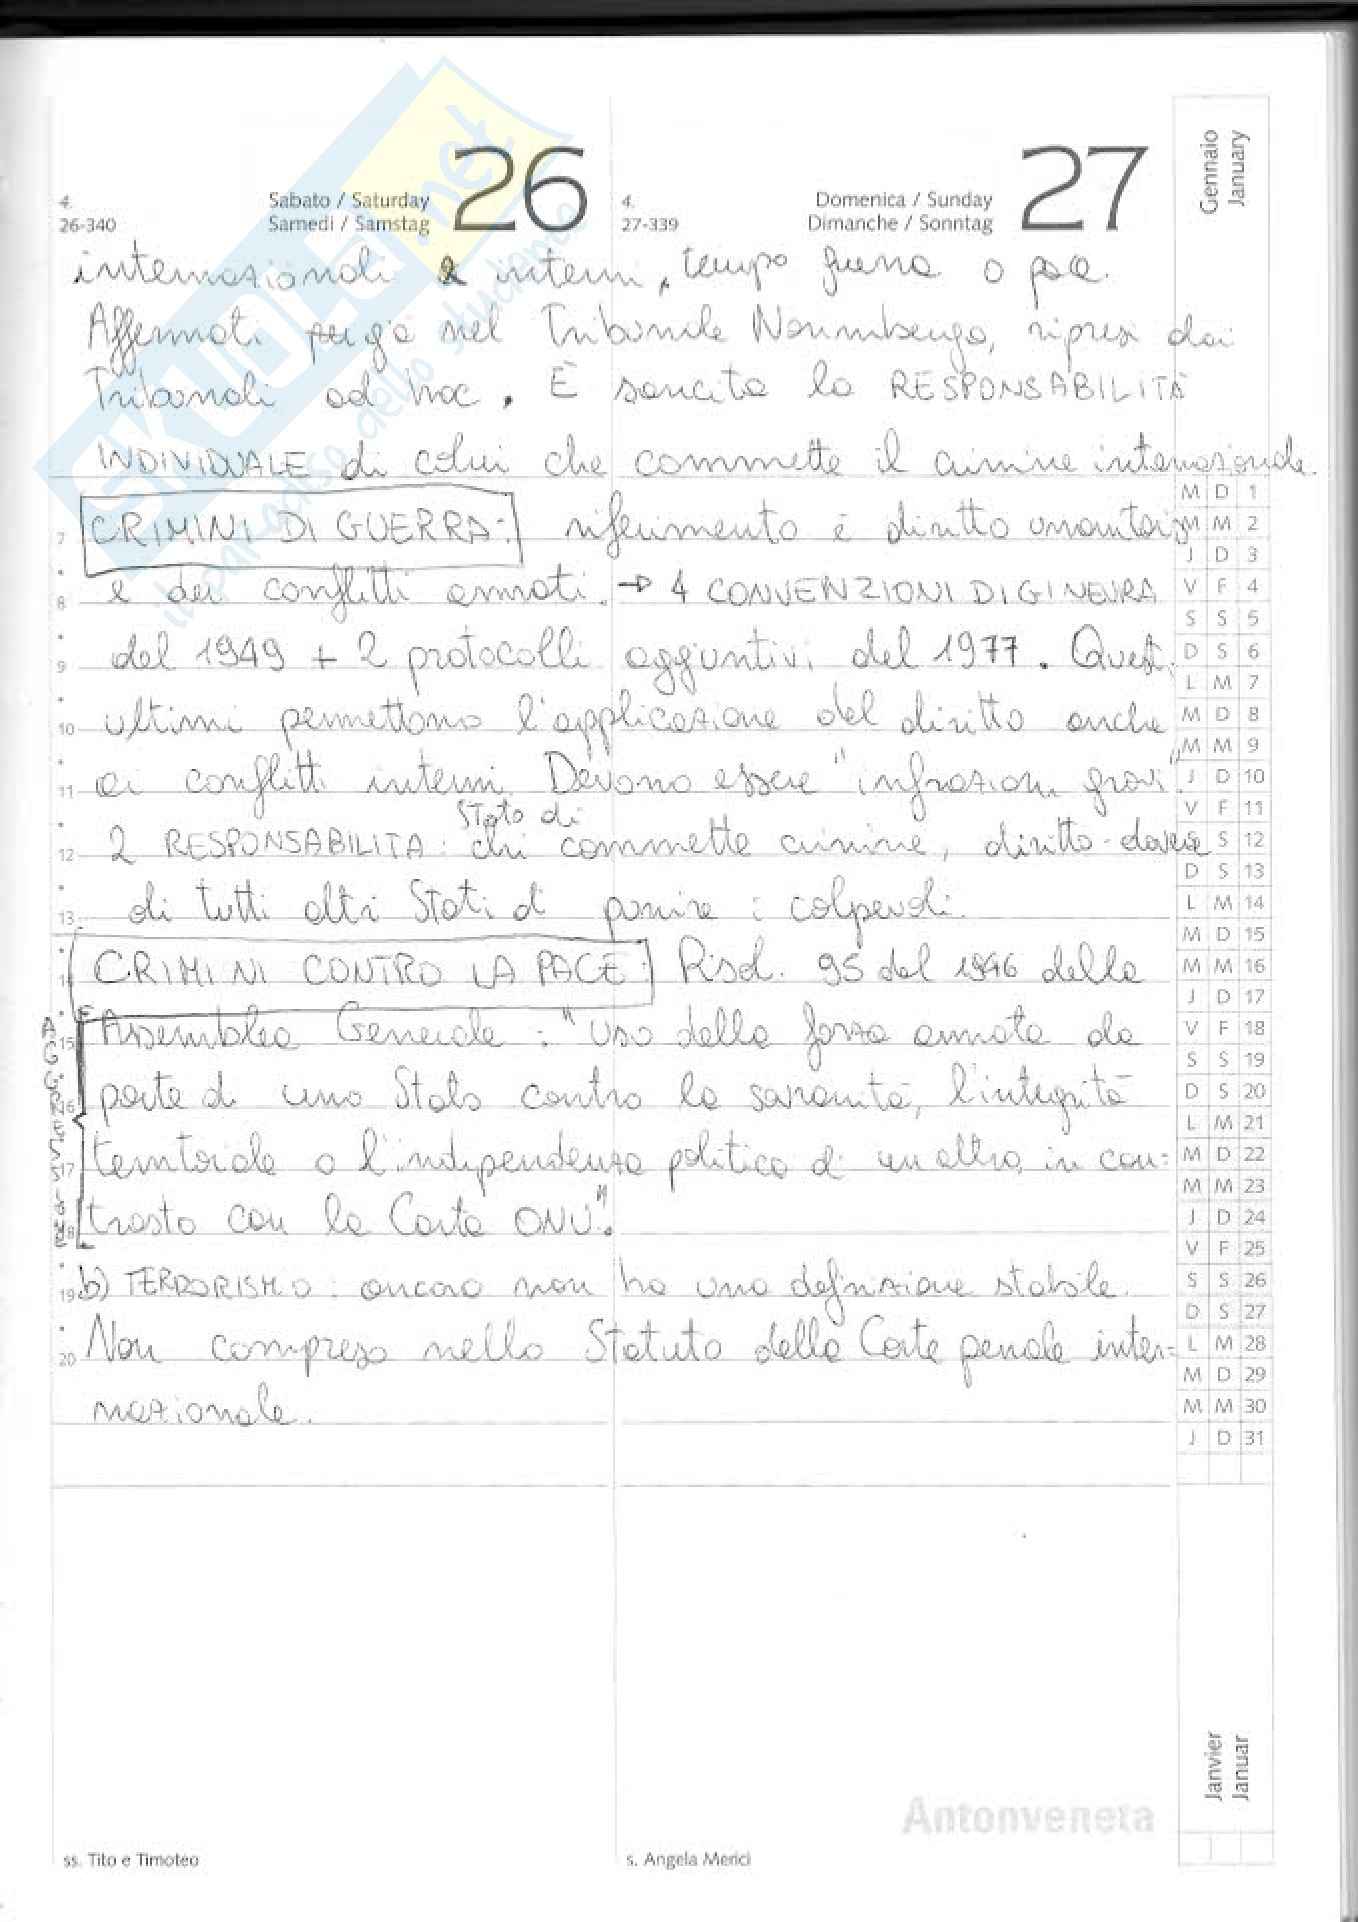 Gennaio
January
4.
26-340
Sabato / Saturday
Samedi / Samstag
26
4.
27-339
Domenica / Sunday
Dimanche / Sonntag
27
SKUOLA.net
il paradiso dello studente
internazionali e interni, tempo guerra o pace.
Affermati già nel Tribunale Norimberga, ripresi dai
Tribunali ad hoc. È sancita la RESPONSABILITÀ
INDIVIDUALE di colui che commette il crimine internazionale.
CRIMINI DI GUERRA: riferimento è diritto umanitario
7
e dei conflitti armati. → 4 CONVENZIONI DI GINEVRA
8
del 1949 + 2 protocolli aggiuntivi del 1977. Questi
9
ultimi permettono l'applicazione del diritto anche
10
ai conflitti interni. Devono essere "infrazioni gravi".
11
Stato di
2 RESPONSABILITÀ: chi commette crimine, diritto-dovere
12
di tutti altri Stati di punire i colpevoli.
13
CRIMINI CONTRO LA PACE: Risol. 95 del 1946 della
14
AGGRESSIONE
Assemblea Generale: "uso della forza armata da
15
parte di uno Stato contro la sovranità, l'integrità
16
territoriale o l'indipendenza politica di un altro, in con=
17
trasto con la Carta ONU".
18
b) TERRORISMO: ancora non ha una definizione stabile.
19
Non compreso nello Statuto della Corte penale inter=
20
nazionale.
M D 1
M M 2
J D 3
V F 4
S S 5
D S 6
L M 7
M D 8
M M 9
J D 10
V F 11
S 12
D S 13
L M 14
M D 15
M M 16
J D 17
V F 18
S S 19
D S 20
L M 21
M D 22
M M 23
J D 24
V F 25
S S 26
D S 27
L M 28
M D 29
M M 30
J D 31
Janvier
Januar
Antonveneta
ss. Tito e Timoteo
s. Angela Merici